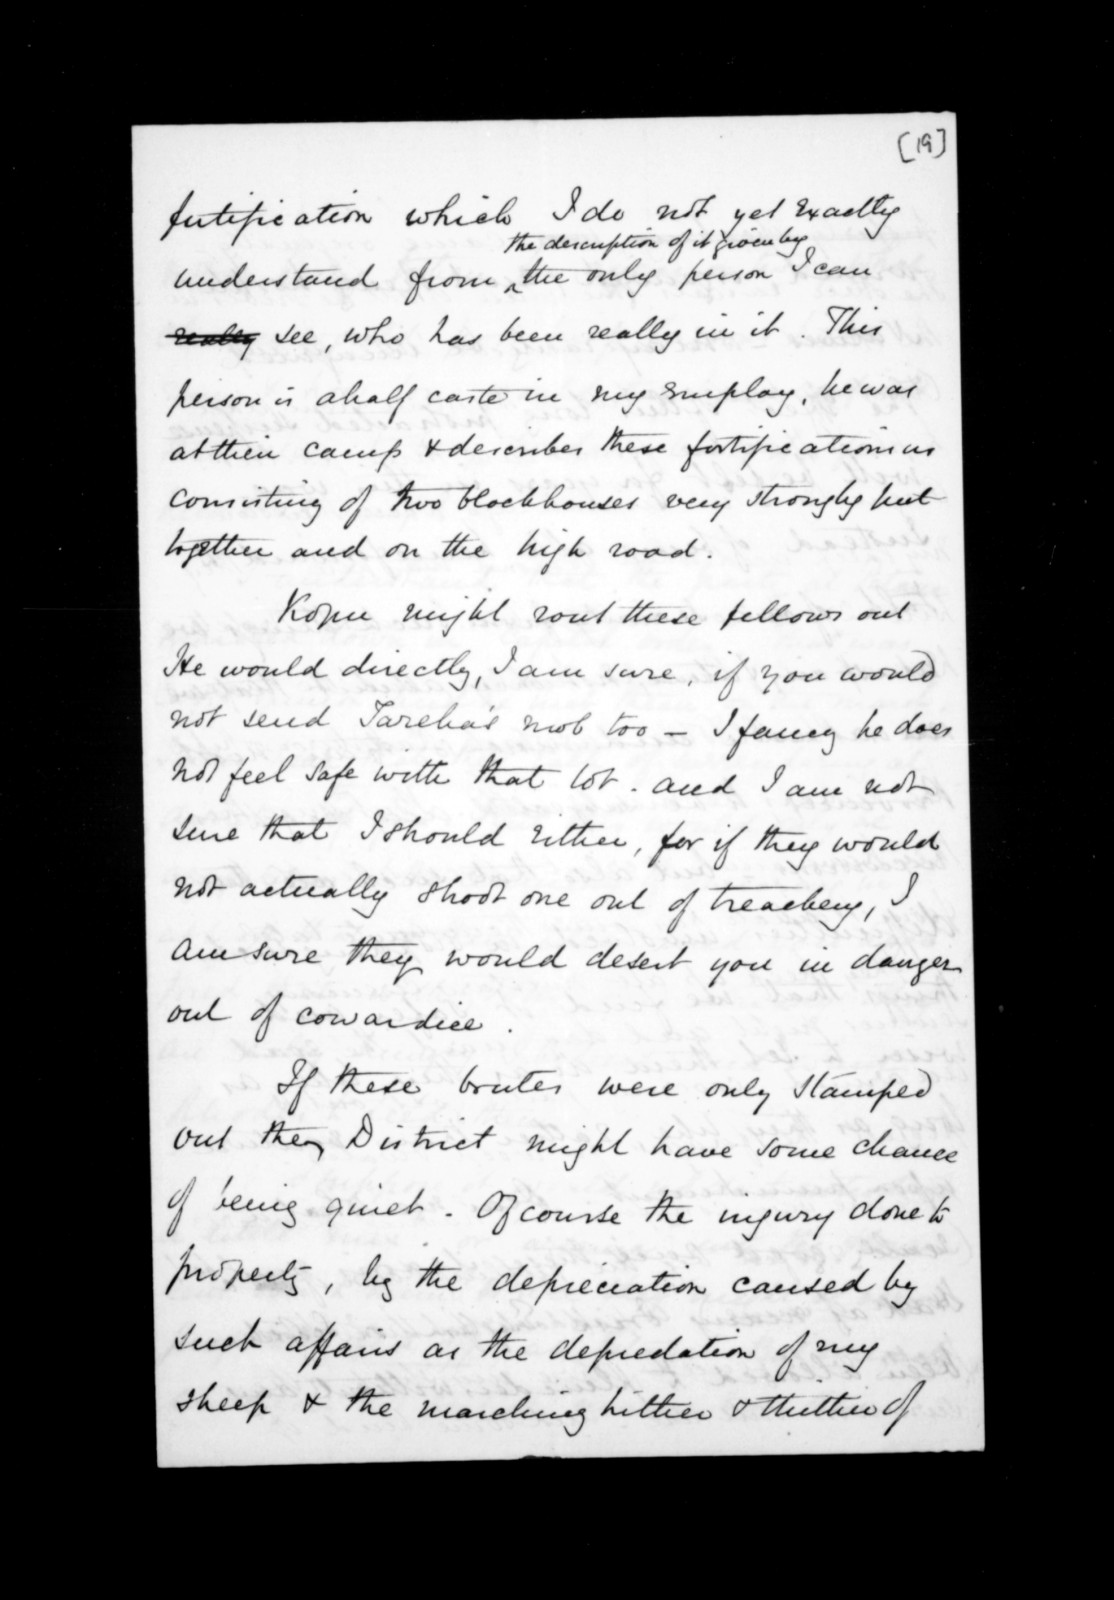 [19]
fortification which I do not yet exactly
the description of it given by
understand from ^ the only person I can
really see, who has been really in it. This
person is a half caste in my employ, he was
at their camp & describes these fortifications as
consisting of two blockhouses very strongly put
together and on the high road.
Kopu might rout these fellows out
He would directly, I am sure, if you would
not send Tareha's mob too - I fancy he does
not feel safe with that lot. and I am not
sure that I should either, for if they would
not actually shoot one out of treachery, I
am sure they would desert you in danger
out of cowardice.
If these brutes were only stamped
out they District might have some chance
of being quiet. Of course the injury done to
property, by the depreciation caused by
such affairs as the depredation of my
sheep & the marching hither & thither of